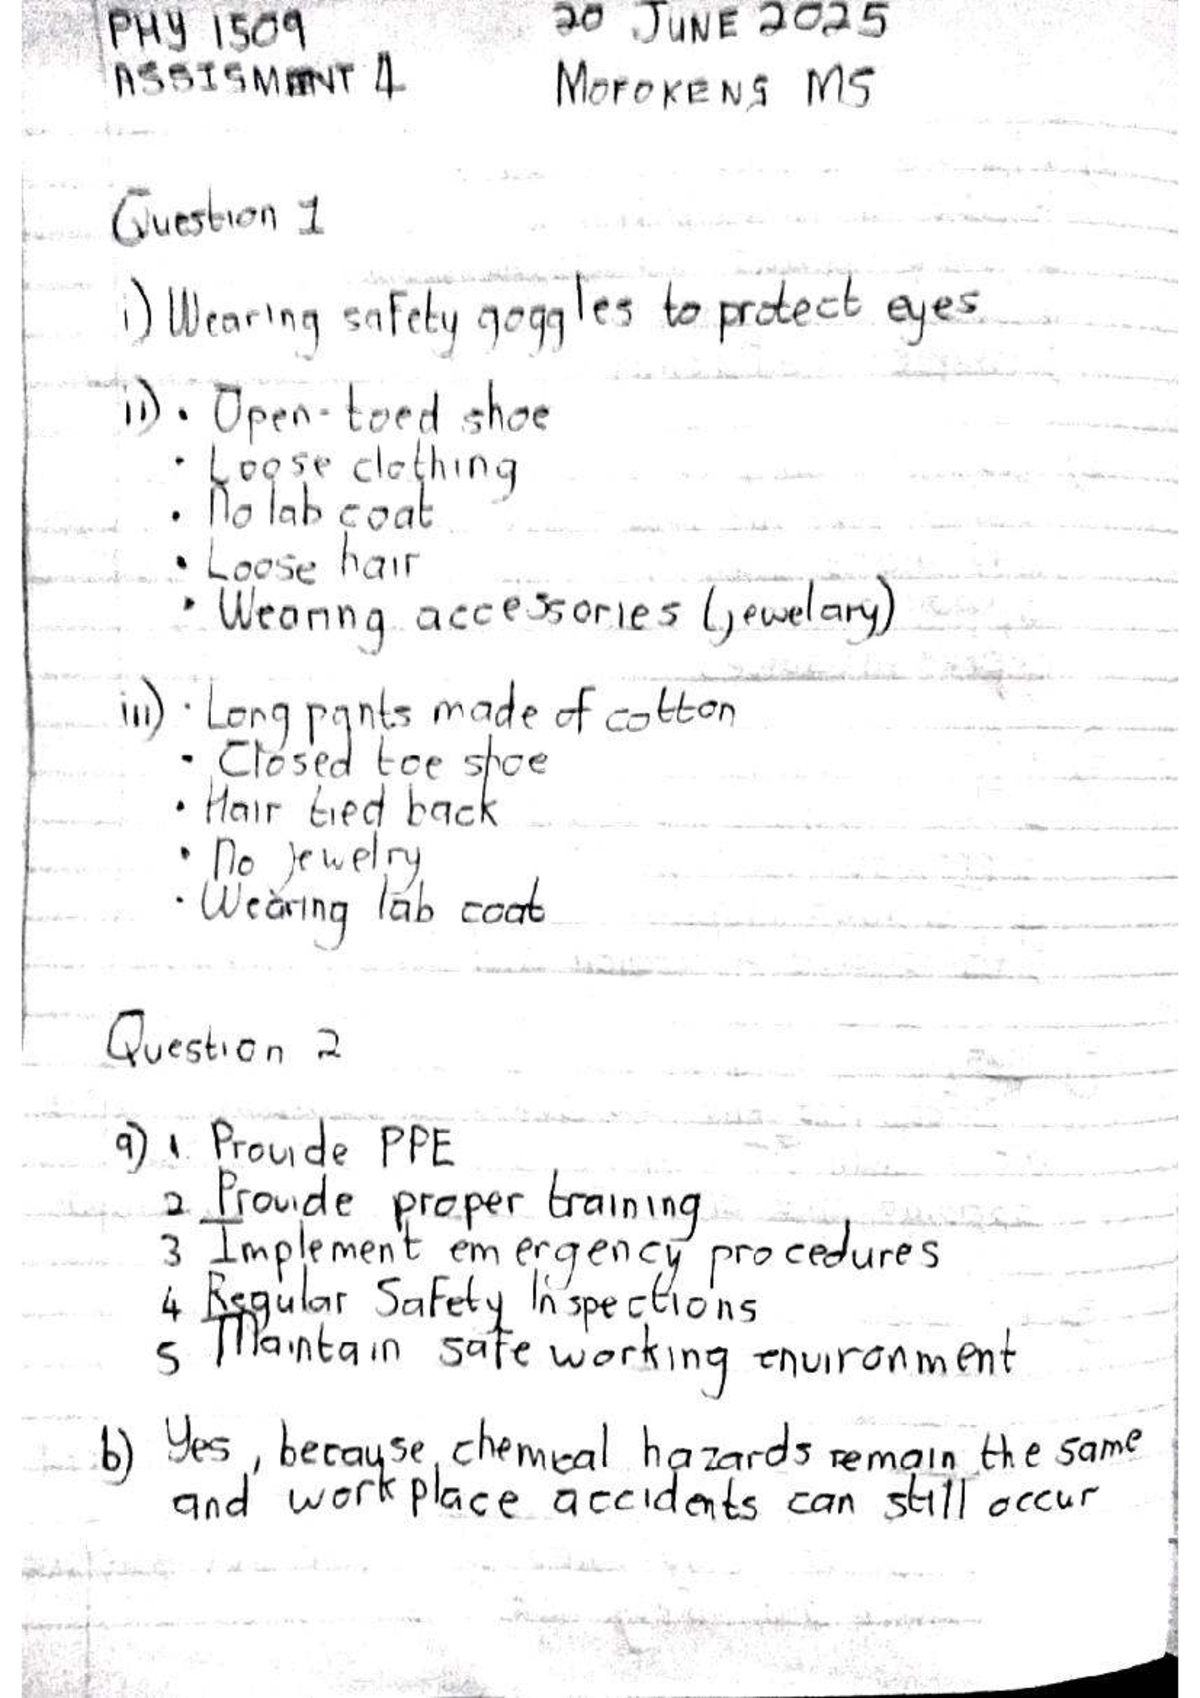 PHY 1509
20 JUNE 2025
ASSISMENT 4
MOFOKENG MS
Question 1
i) Wearing safety goggles to protect eyes
ii) • Open-toed shoe
• Loose clothing
• No lab coat
• Loose hair
• Wearing accessories (jewelary)
iii) • Long pants made of cotton
• Closed toe shoe
• Hair tied back
• No jewelry
• Wearing lab coat
Question 2
a) 1. Provide PPE
2 Provide proper training
3 Implement emergency procedures
4 Regular Safety Inspections
5 Maintain safe working environment
b) Yes, because chemical hazards remain the same
and workplace accidents can still occur